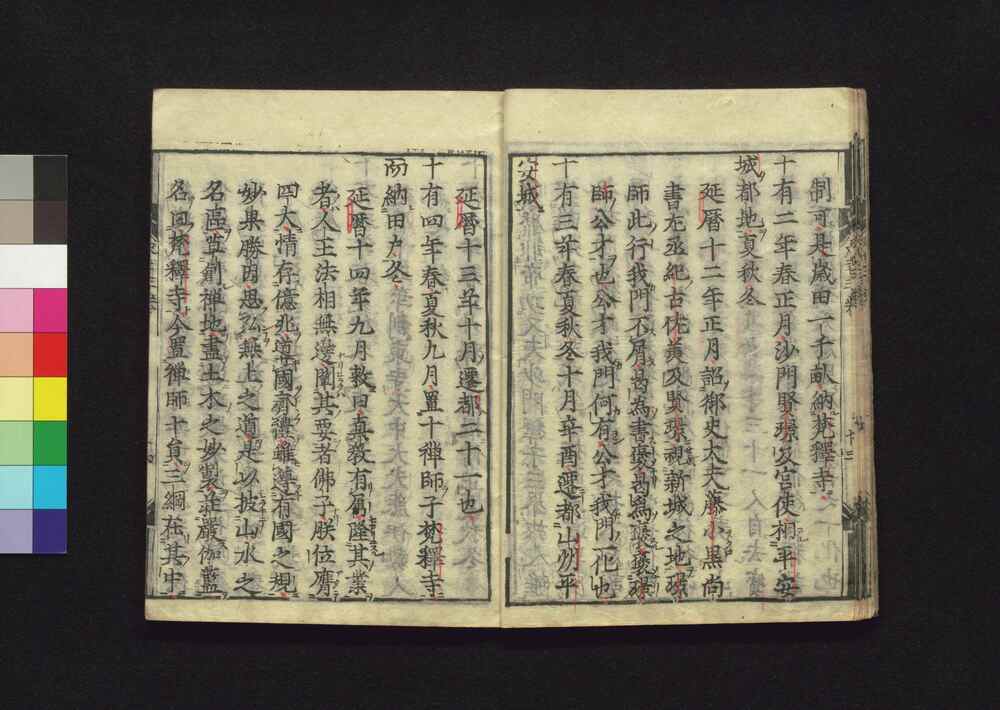 制可是歳田一千畝納梵釋寺
十有二年春正月沙門賢璟及官使相平安
城都地夏秋冬
延暦十二年正月詔御史大夫藤小黒尚
書左丞紀古佐美及賢璟視新城之地璟
師此行我門不屑
師公才也公才我門何有公才我門一化也
十有三年春夏秋冬十月辛酉遷都山州平
安城
延暦十三年十月遷都二十一也
十有四年春夏秋九月置十禅師于梵釋寺
而納田戸冬
延暦十四年九月敕曰真教有属隆其業
者人王法相無邊闡其要者佛子朕位膺
四大情存億兆導德齊禮雖遵有國之規
妙果勝因思弘無上之道是以披山水之
名區草創禅地盡土木之妙製莊嚴伽藍
名曰梵釋寺今置禅師十員三綱在其中